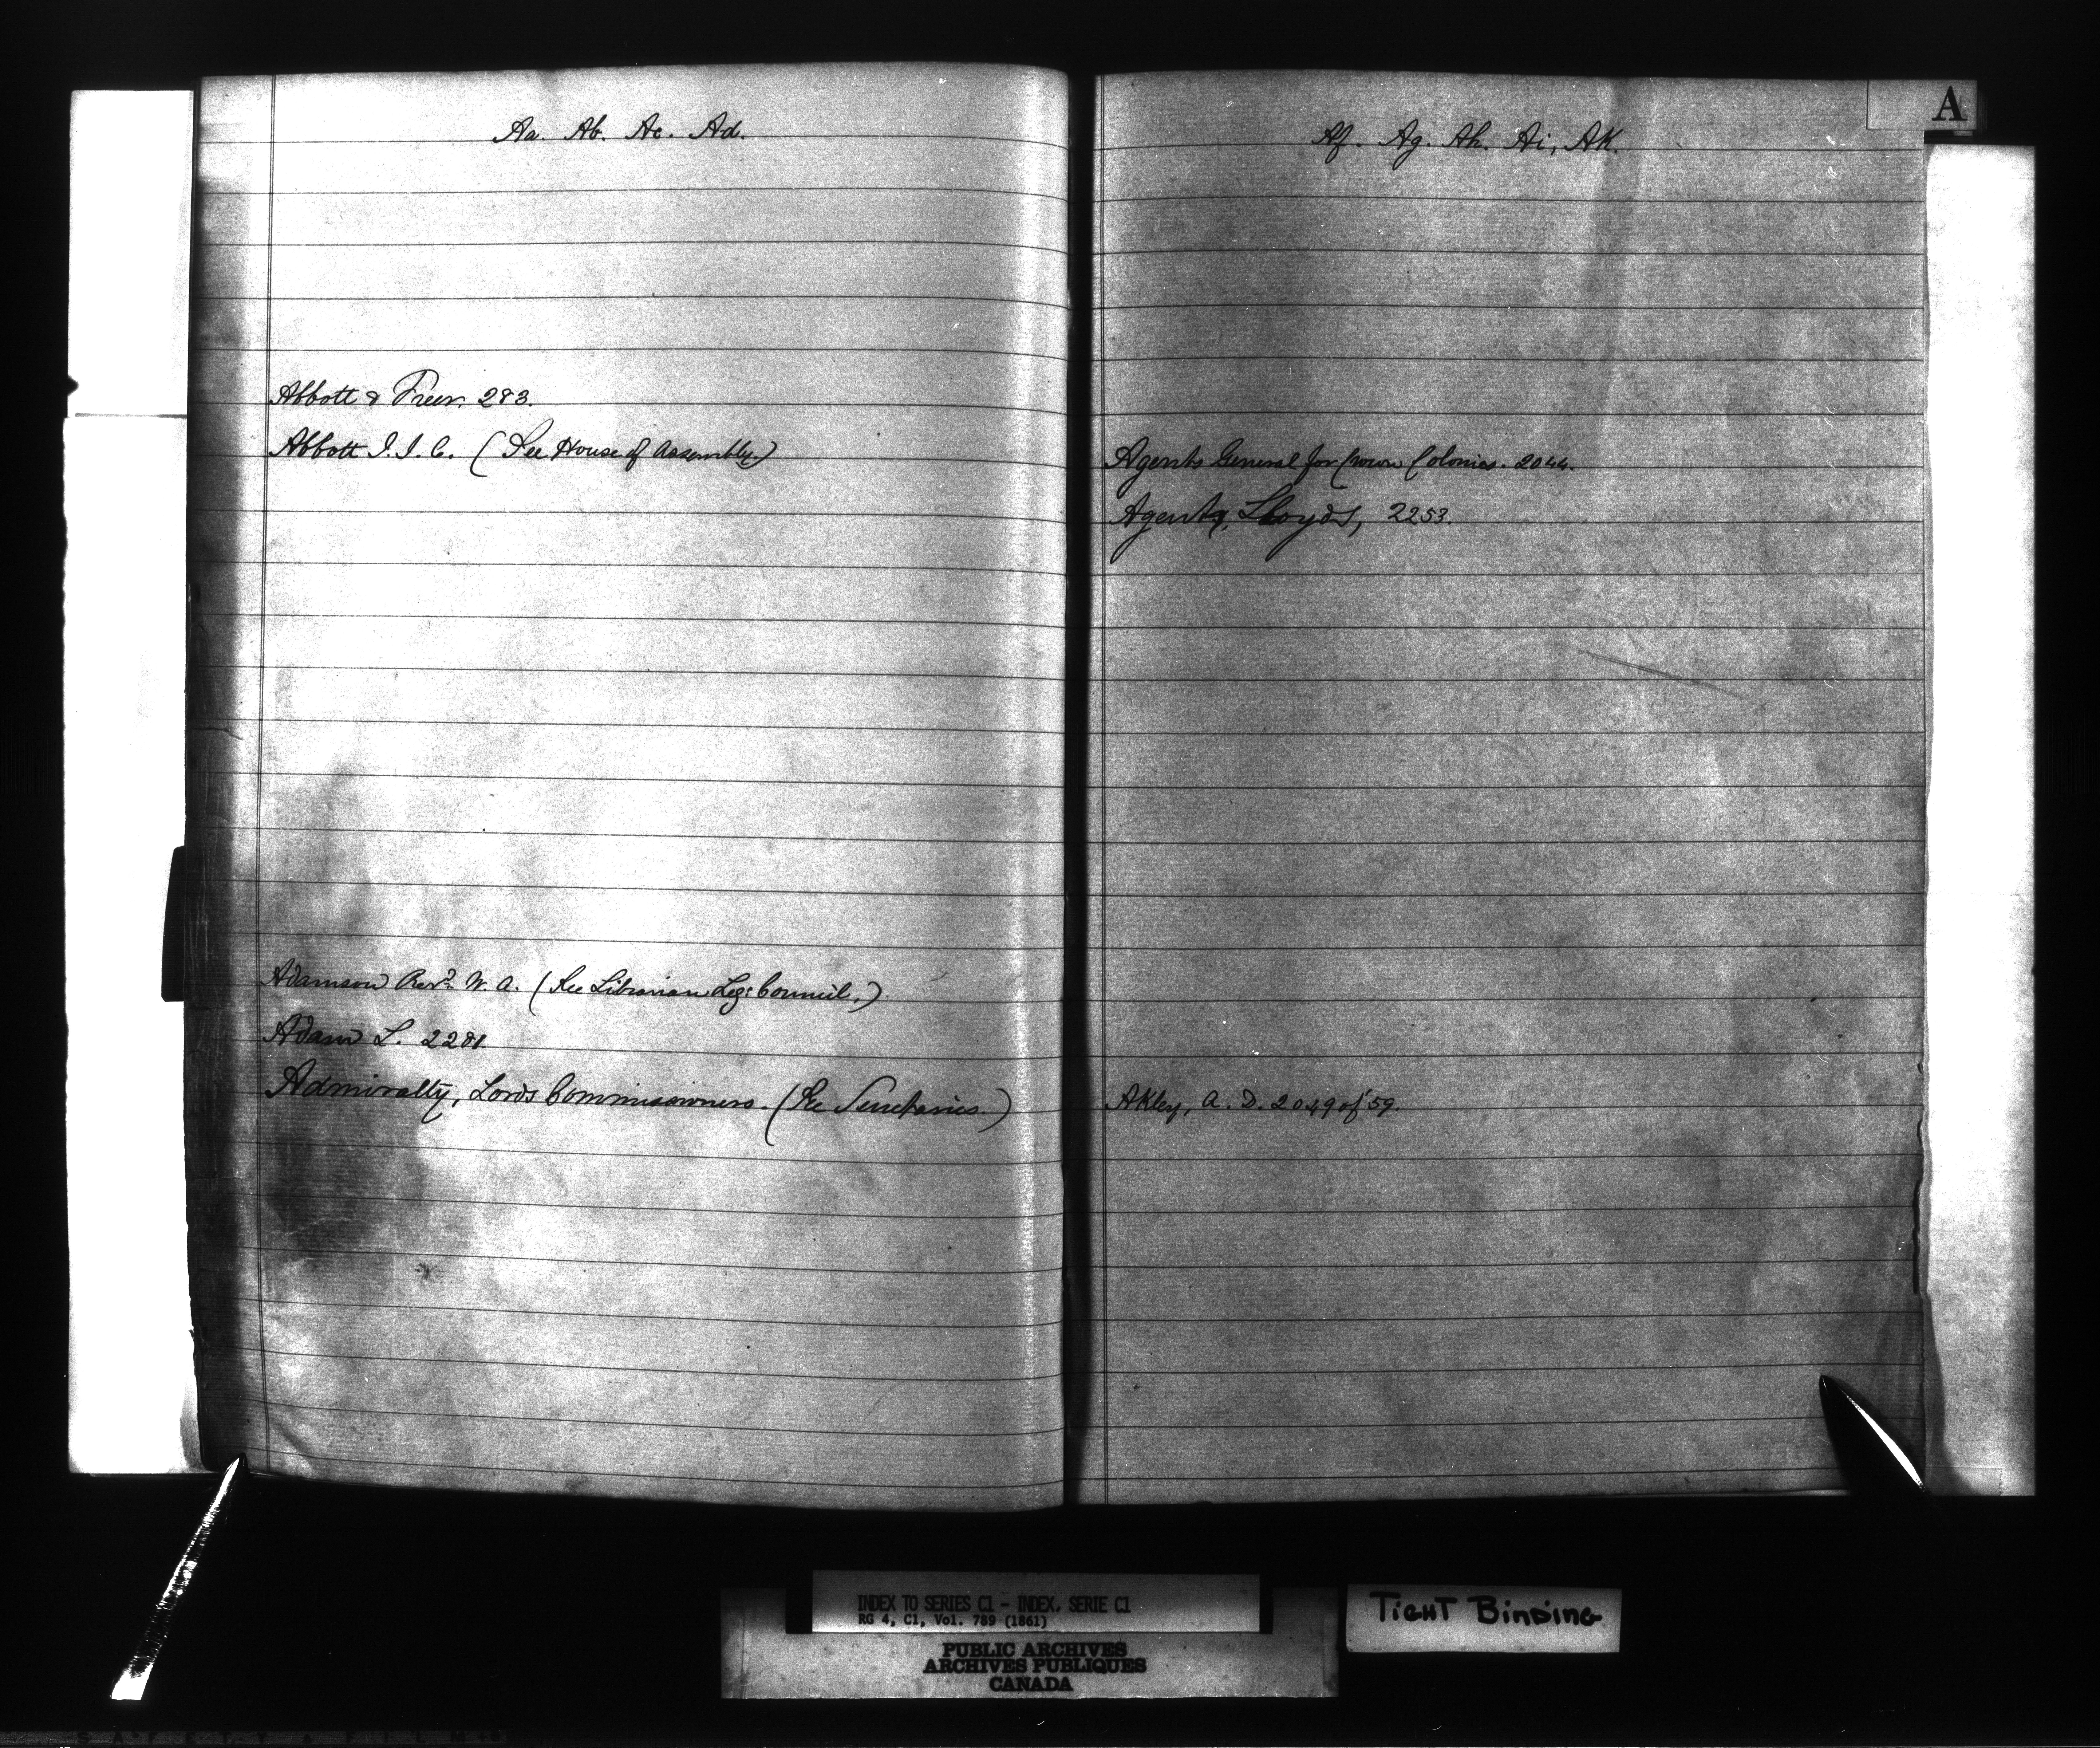 Aa. Ab. Ac. Ad.
Abbott & Freer. 283.
Abbott J. J. C. (See House of Assembly.)
Adamson Revd. W. A. (See Librarian Leg: Council.)
Adam L. 2281.
Admiralty, Lords Commissioners. (See Secretaries.)
A
Af. Ag. Ah. Ai, AK.
Agents General for Crown Colonies. 2044.
Agents, Lloyds, 2253.
AKley, A. D. 2049 of 59.
INDEX TO SERIES C1 - INDEX, SERIE C1
RG 4, C1, Vol. 789 (1861)
PUBLIC ARCHIVES
ARCHIVES PUBLIQUES
CANADA
TIGHT BINDING